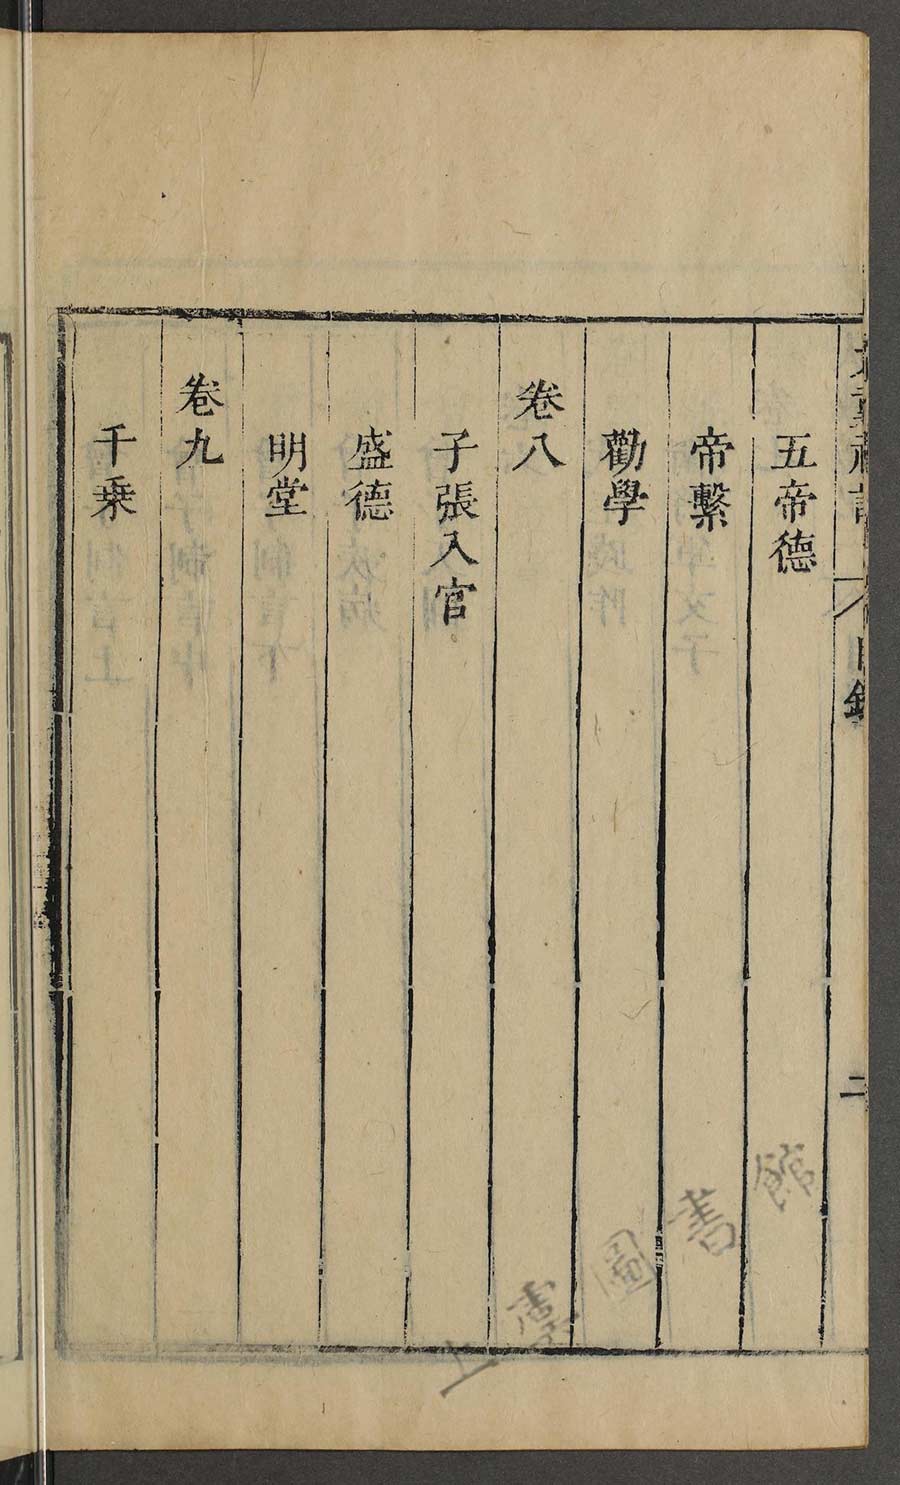 大戴禮記 目錄 二
五帝德
帝繫
勸學
卷八
子張入官
盛德
明堂
卷九
千乗
上虞圖書館